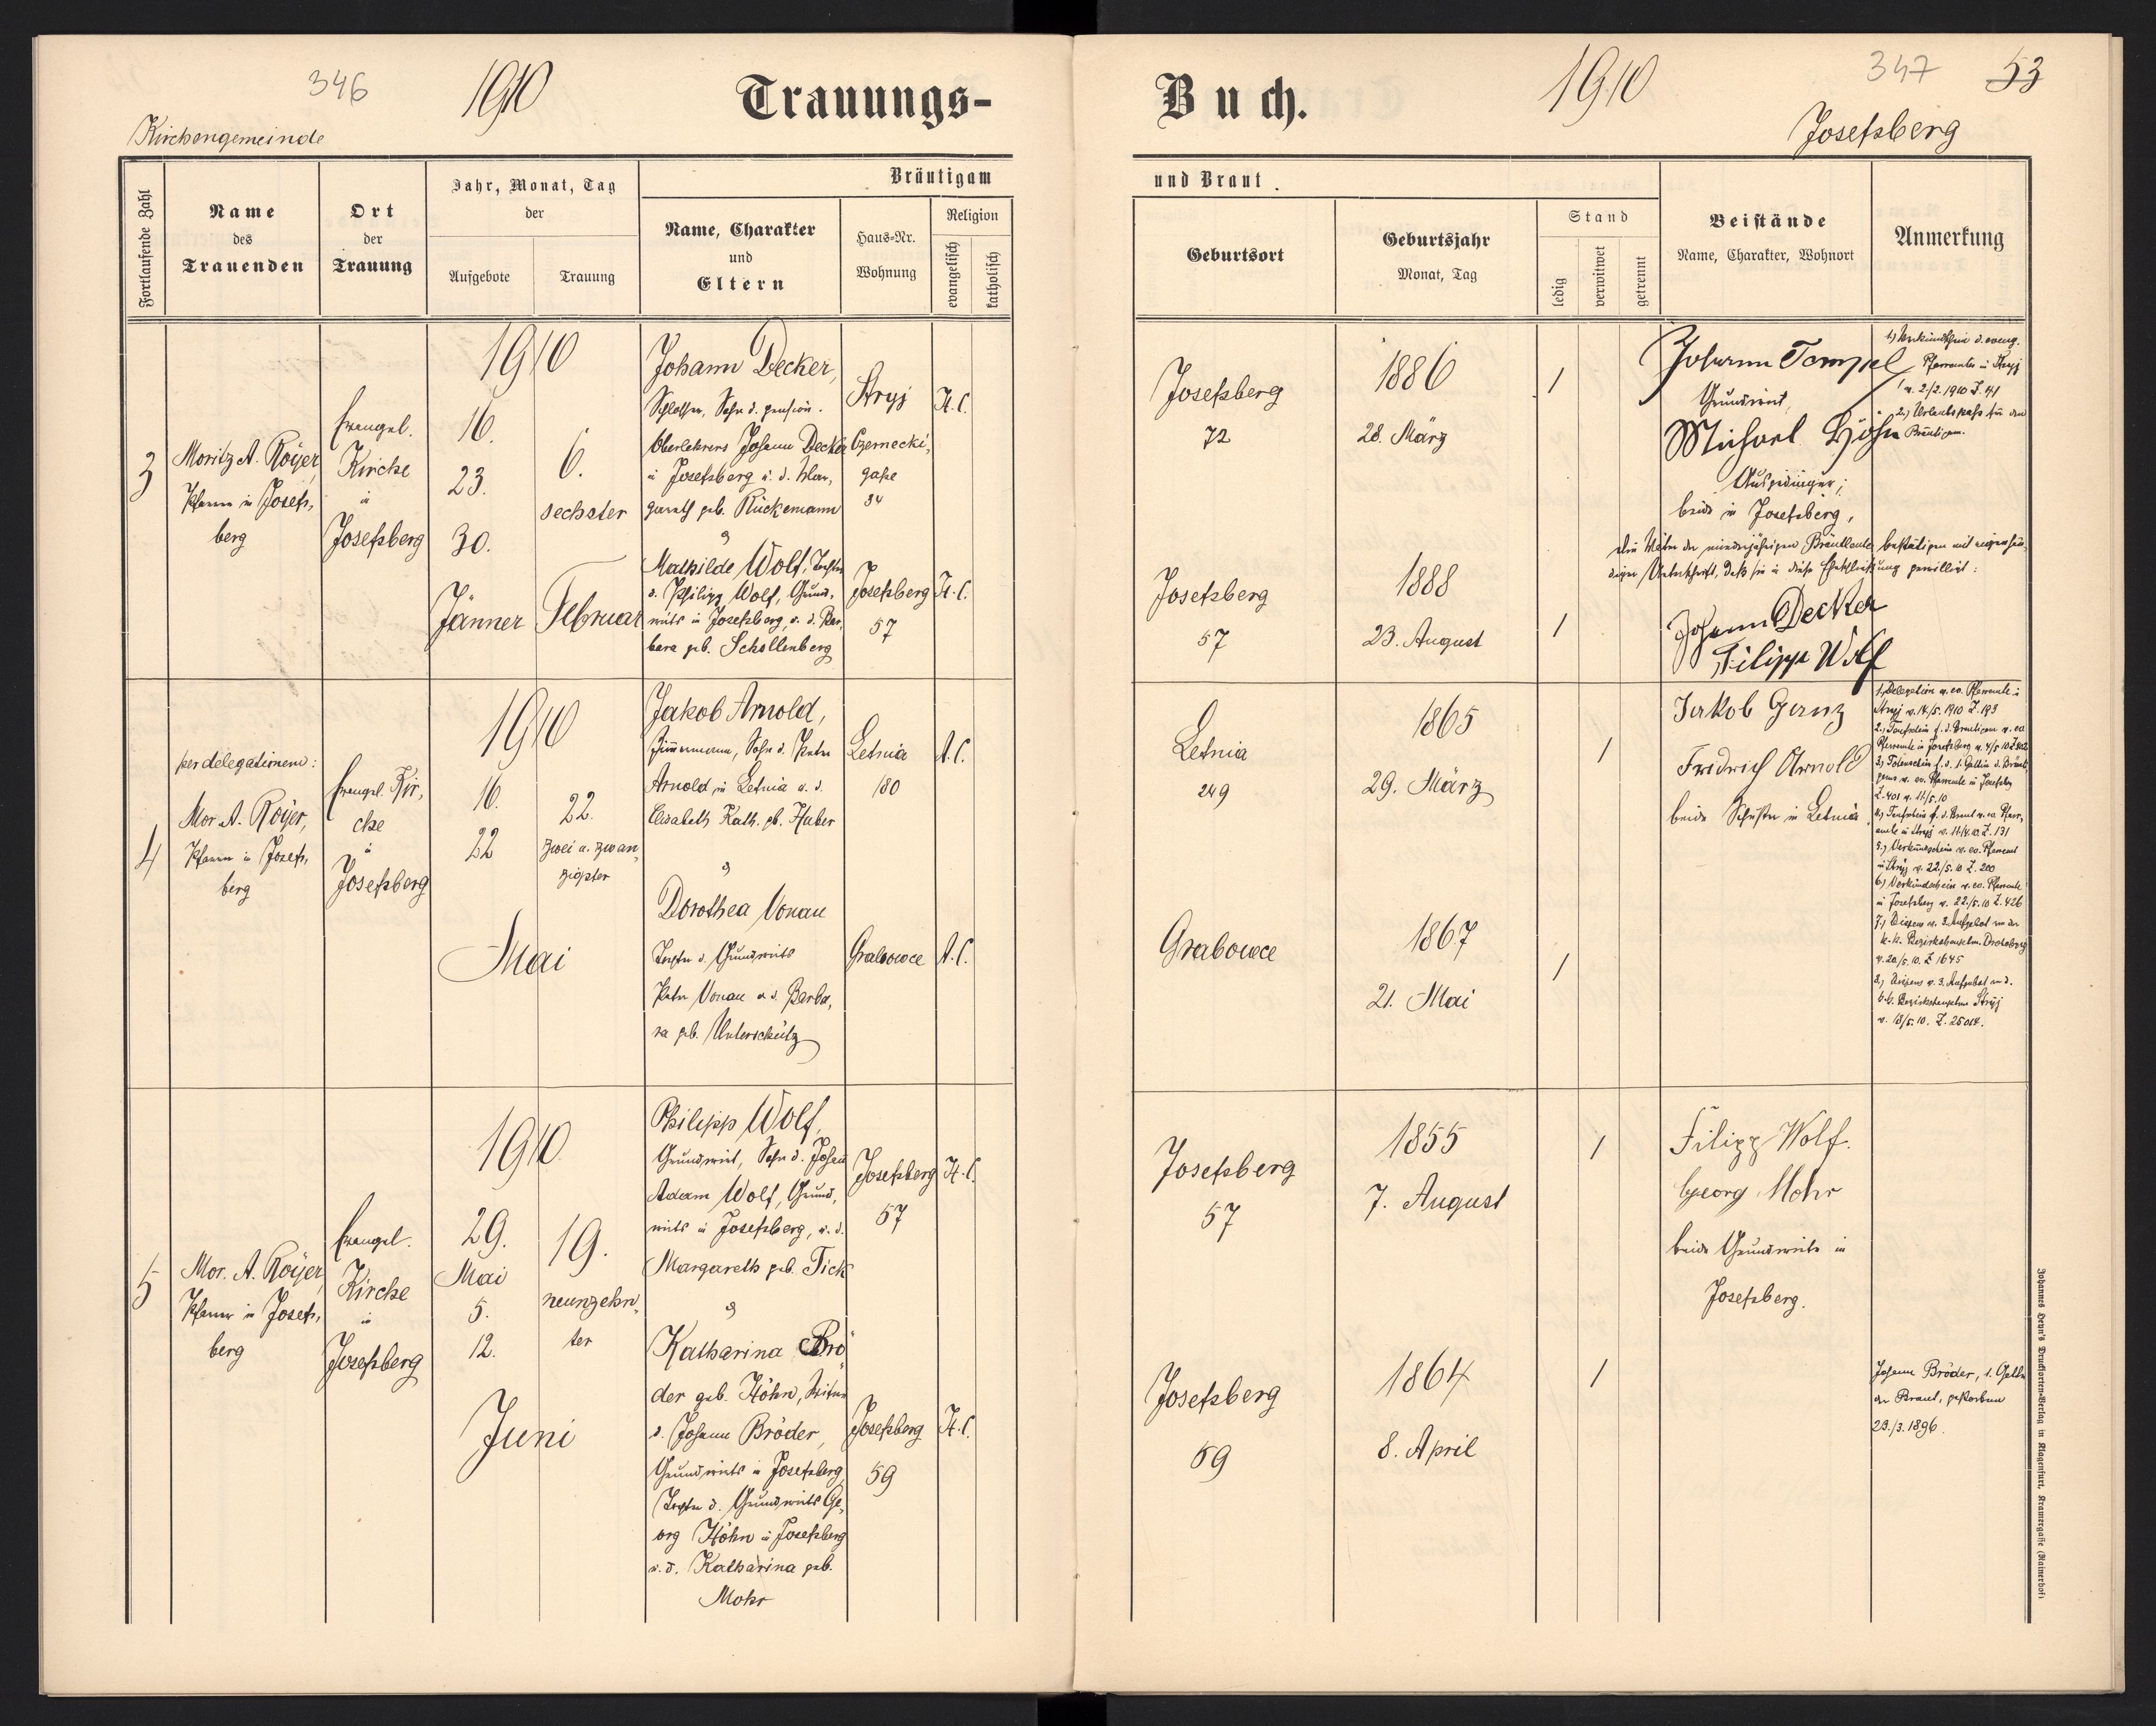 346
1910
Trauungs-
Kirchengemeinde
Fortlaufende Zahl
Name
des
Trauenden
Ort
der
Trauung
Jahr, Monat, Tag
der
Aufgebote
Trauung
Bräutigam
Name, Charakter
und
Eltern
Haus-Nr.
Wohnung
Religion
evangelisch
katholisch
3
Moritz A. Royer,
Pfarrer in Josefs,
berg
Evangel.
Kirche
in
Josefsberg
1910
16.
23.
30.
Jänner
6.
sechster
Februar
Johann Decker,
Schlosser, Sohn d. pension.
Oberlehrers Johann Decker
in Josefsberg u. d. Mar,
gareth geb. Rückemann
&
Mathilde Wolf, Tochter
d. Philipp Wolf, Grund,
wirts in Josefsberg, u. d. Bar,
bara geb. Schollenberg
Stryj
Czernecki,
gasse
34
H. C.
Josefsberg
57
H. C.
4
per delegationem:
Mor. A. Royer,
Pfarrer in Josefs,
berg
Evangel. Kir,
che
in
Josefsberg
1910
16.
22
22.
zwei u. zwan,
zigster
Mai
Jakob Arnold,
Zimmermann, Sohn d. Peter
Arnold in Letnia u. d.
Elisabeth Kath. gb. Huber
&
Dorothea Vonau
Tochter d. Grundwirts
Peter Vonau u. d. Barba,
ra geb. Unterschütz
Letnia
180
A. C.
Grabowce
A. C.
5
Mor. A. Royer,
Pfarrer in Josefs,
berg
Evangel.
Kirche
in
Josefsberg
1910
29.
Mai
5.
12.
Juni
19.
neunzehn,
ter
Philipp Wolf,
Grundwirt, Sohn d. Johann
Adam Wolf, Grund,
wirts in Josefsberg, u. d.
Margareth geb. Tick
&
Katharina Brö
der geb. Höhn, Witwe
d. Johann Bröder,
Grundwirts in Josefsberg,
Tochter d. Grundwirts Ge,
org Höhn in Josefsberg
u. d. Katharina geb.
Mohr
Josefsberg
57
H. C.
Josefsberg
59
H. C.
Buch.
1910
347
53
Josefsberg
und Braut.
Geburtsort
Geburtsjahr
Monat, Tag
Stand
ledig
verwitwet
getrennt
Beistände
Name, Charakter, Wohnort
Anmerkung
Josefsberg
72
1886
28. März
1
Johann Tempel
Grundwirt,
Michael Höhn
Ausgedinger,
beide in Josefsberg,
1.) Verkündschein d. evang.
Pfarramtes in Stryj
v. 2/2. 1910 Z. 41
2.) Urlaubspass für den
Bräutigam.
Die Väter der minderjährigen Brautleute bestätigen mit eigenhän,
diger Unterschrift, daß sie in diese Eheschließung gewilligt:
Johann Decker
Filipp Wolf
Josefsberg
57
1888
23. August
1
Letnia
249
1865
29. März
1
Jakob Ganz
Fridrich Arnold
beide Schuster in Letnia
1.) Delegation v. ev. Pfarramte in
Stryj v. 14/5. 1910 Z. 193
2.) Taufschein f. d. Bräutigam v. ev.
Pfarramte in Josefsberg v. 4/5 10
3.) Totenschein f. d. 1. Gattin d. Bräuti,
gams v. ev. Pfarramte in Josefsbg
Z. 401 v. 11/5. 10
4.) Taufschein f. d. Braut v. ev. Pfarr,
amte in Stryj v. 11/4. 10. Z. 131
5.) Verkündschein v. ev. Pfarramt
in Stryj v. 22/5. 10 Z. 200
6.) Verkündschein v. ev. Pfarramte
in Josefsberg v. 22/5. 10 Z. 426
7.) Dispens v. 3. Aufgebot von der
k. k. Bezirkshauptm. Drohobycz
v. 20/5. 10. Z. 1645
8.) Dispens v. 3. Aufgebot von d.
k. k. Bezirkshauptm. Stryj
v. 18/5. 10. Z. 25014.
Grabowce
1867
21. Mai
1
Josefsberg
57
1855
7. August
1
Filipp Wolf.
Georg Mohr
beide Grundwirte in
Josefsberg.
Josefsberg
59
1864
8. April
1
Johann Bröder, 1. Gatte
der Braut, gestorben
23./3. 1896.
Johannes Heyn's Drucksorten-Verlag in Klagenfurt, Kramergasse (Rainerhof)